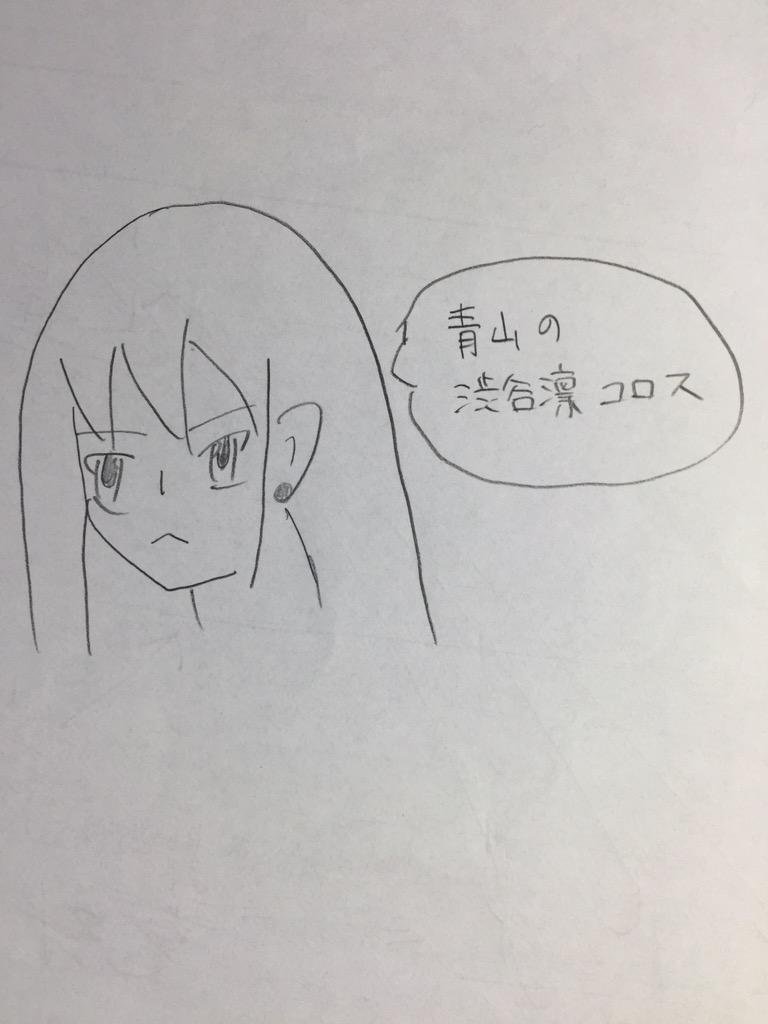 青山の
渋谷凛コロス